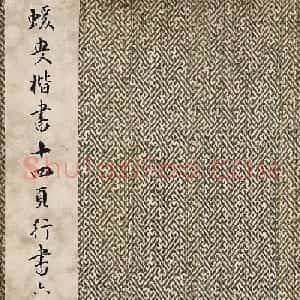 蝯叟楷書十四頁行書六
Shufaziliao.com